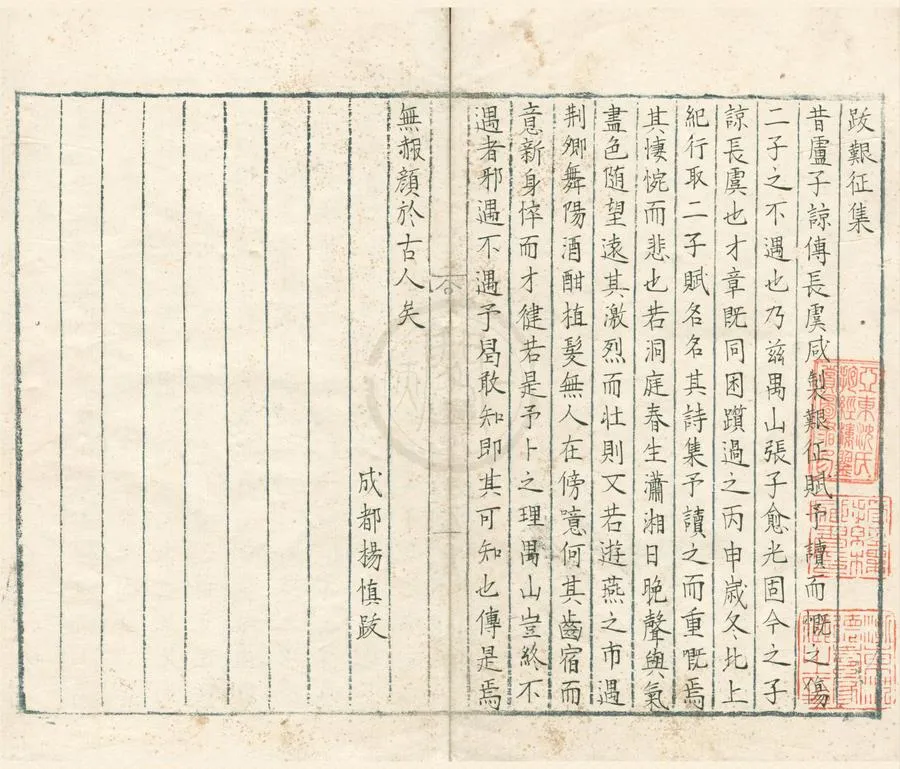 跋艱征集
昔盧子諒傅長虞咸製艱征賦予讀而慨之傷
二子之不遇也乃茲禺山張子愈光固今之子
諒長虞也才章既同困躓過之丙申嵗冬北上
紀行取二子賦名名其詩集予讀之而重慨焉
其悽惋而悲也若洞庭春生瀟湘日晚聲與氣
盡色随望遠其激烈而壯則又若遊燕之市遇
荆卿舞陽酒酣植髮無人在傍噫何其齒宿而
意新身悴而才健若是予卜之理禺山豈終不
遇者邪遇不遇予曷敢知即其可知也傳是焉
無赧顔於古人矣
成都楊慎跋